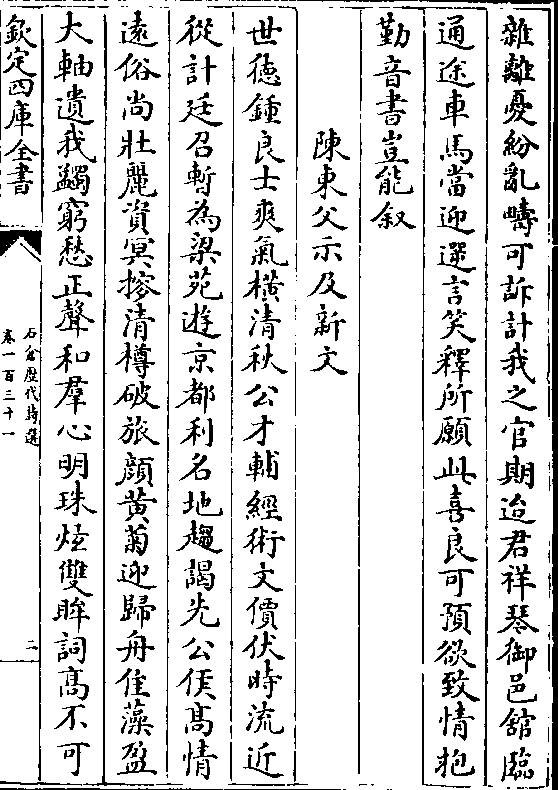 雜離憂紛亂疇可訴計我之官期迨君祥琴御邑舘臨
通途車馬當迎遝言笑釋所願此喜良可預欲致情抱
勤音書豈能叙
陳東父示及新文
世徳鍾良士爽氣橫清秋公才輔經術文價伏時流近
從計廷召暫為梁苑遊京都利名地趨謁先公侯髙情
遠俗尚壯麗資冥搜清樽破旅顔黄菊迎歸舟佳藻盈
大軸遺我蠲窮愁正聲和羣心明珠炫雙眸詞髙不可
欽定四庫全書
石倉歴代詩選
卷一百三十一
二